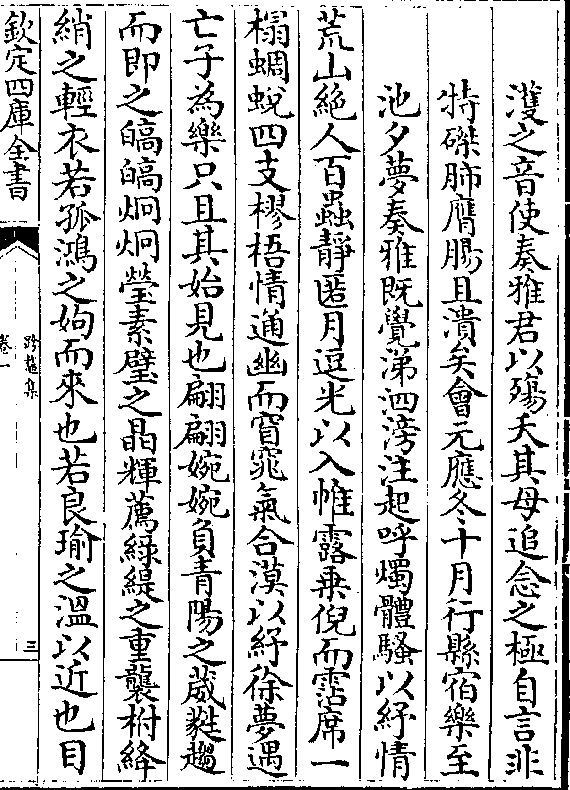 濩之音使奏雅君以殤夭其母追念之極自言非
特磔肺膺腸且潰矣會元應冬十月行縣宿樂至
池夕夢奏雅既覺涕泗滂注起呼燭體騷以紓情
荒山絶人百蟲靜匿月逗光以入帷露乗倪而霑席一
榻蜩蛻四支樛梧情通幽而窅窕氣合漠以紓徐夢遇
亡子為樂只且其始見也翩翩婉婉負青陽之葳蕤趨
而即之皜皜炯炯瑩素璧之晶輝薦緑緹之重襲柎絳
綃之輕衣若孤鴻之姁而來也若良瑜之溫以近也目
欽定四庫全書
跨鼇集
卷一
三